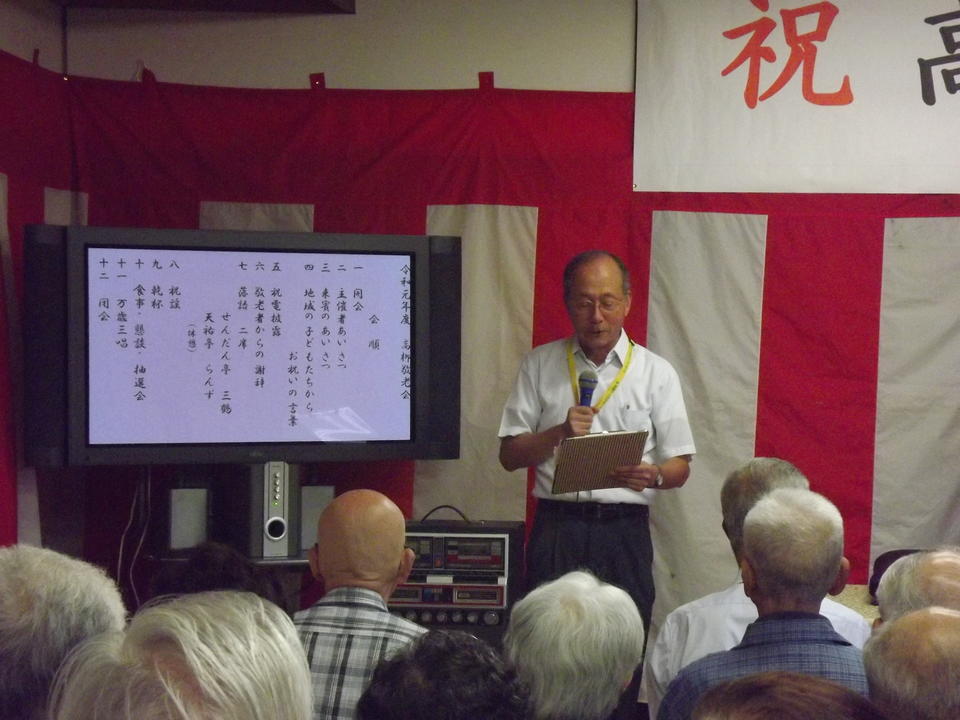 祝 高
令和元年度 高柳敬老会
会 順
一 開会
二 主催者あいさつ
三 来賓のあいさつ
四 地域の子どもたちから
お祝いの言葉
五 祝電披露
六 敬老者からの謝辞
七 落語 二席
せんだん亭 三鶴
天祐亭 らんず
(休憩)
八 祝謡
九 乾杯
十 食事・懇談・抽選会
十一 万歳三唱
十二 閉会